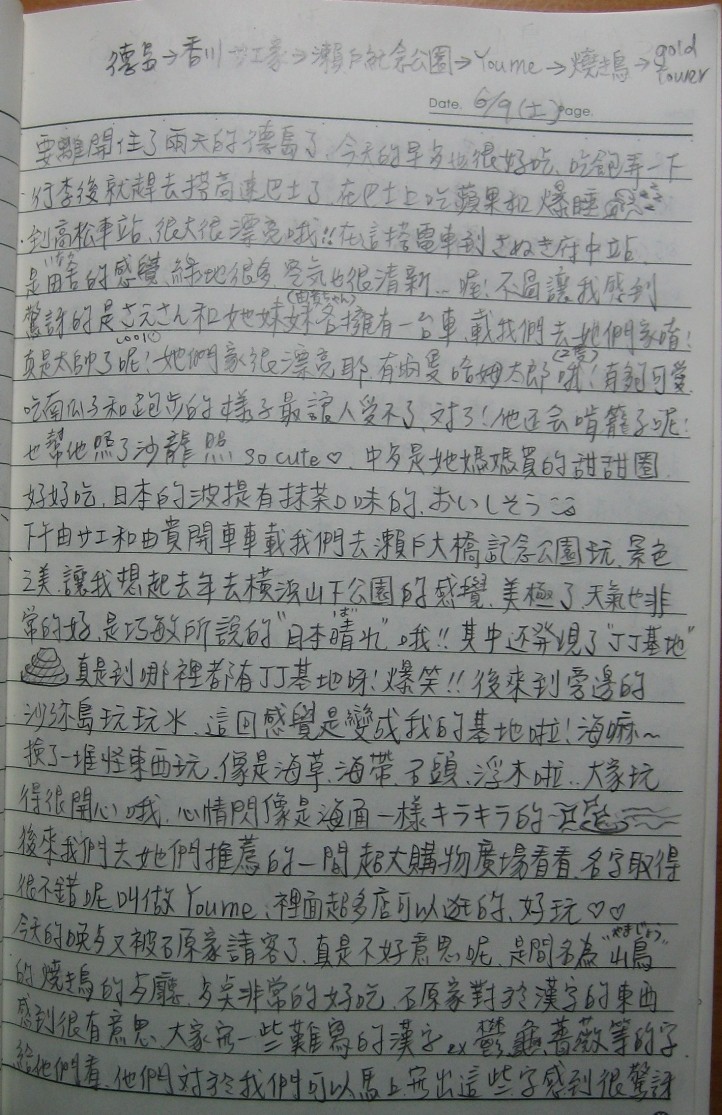 德島→香川 サエ家→瀨戶記念公園→Youme→燒き鳥→gold tower
Date. 6/9(土) Page.
要離開住了兩天的德島了、今天的早歺也很好吃、吃飽弄一下
行李後就趕去搭高速巴士了、在巴士上吃蘋果和爆睡
到高松車站、很大很漂亮哦!!在這搭電車到さぬき府中站、
是田舍的感覺、綠地很多、空気也很清新...喔!不過讓我感到
いなか
驚訝的是さえさん和她妹妹各擁有一台車、載我們去她們家唷!
(由貴ちゃん)
真是太帥了呢!她們家很漂亮耶、有兩隻哈姆太郎哦!有夠可愛
cool
吃南瓜子和跑步的樣子最讓人受不了、对了!他还会啃籠子呢!
也幫他照了沙龍照 so cute♡、中歺是她媽媽買的甜甜圈、
好好吃、日本的波提有抹茶口味的、おいしそう
下午由サエ和由貴開車載我們去瀨戶大橋記念公園玩、景色
之美、讓我想起去年去橫浜山下公園的感覺、美極了、天氣也非
常的好、是巧敏所說的"日本晴れ"哦!!其中还發現了"丁丁基地"
ば
真是到哪裡都有丁丁基地呀!爆笑!!後來到旁邊的
沙弥島玩玩水、這回感覺是變成我的基地啦!海嘛~
撿了一堆怪東西玩、像是海草、海帶、石頭、浮木啦..大家玩
得很開心哦、心情閃像是海面一樣キラキラ的
後來我們去她們推薦的一間超大購物廣場看看、名字取得
很不錯呢 叫做 Youme、裡面超多店可以逛的、好玩♡♡
今天的晚歺又被石原家請客了、真是不好意思呢、是間名為"山鳥"
やまじょう
的燒き鳥的歺廳、歺點非常的好吃、石原家對於漢字的東西
感到很有意思、大家寫一些難寫的漢字 ex 鬱、龜、薔薇等的字
給他們看、他們对於我們可以馬上寫出這些字感到很驚訝